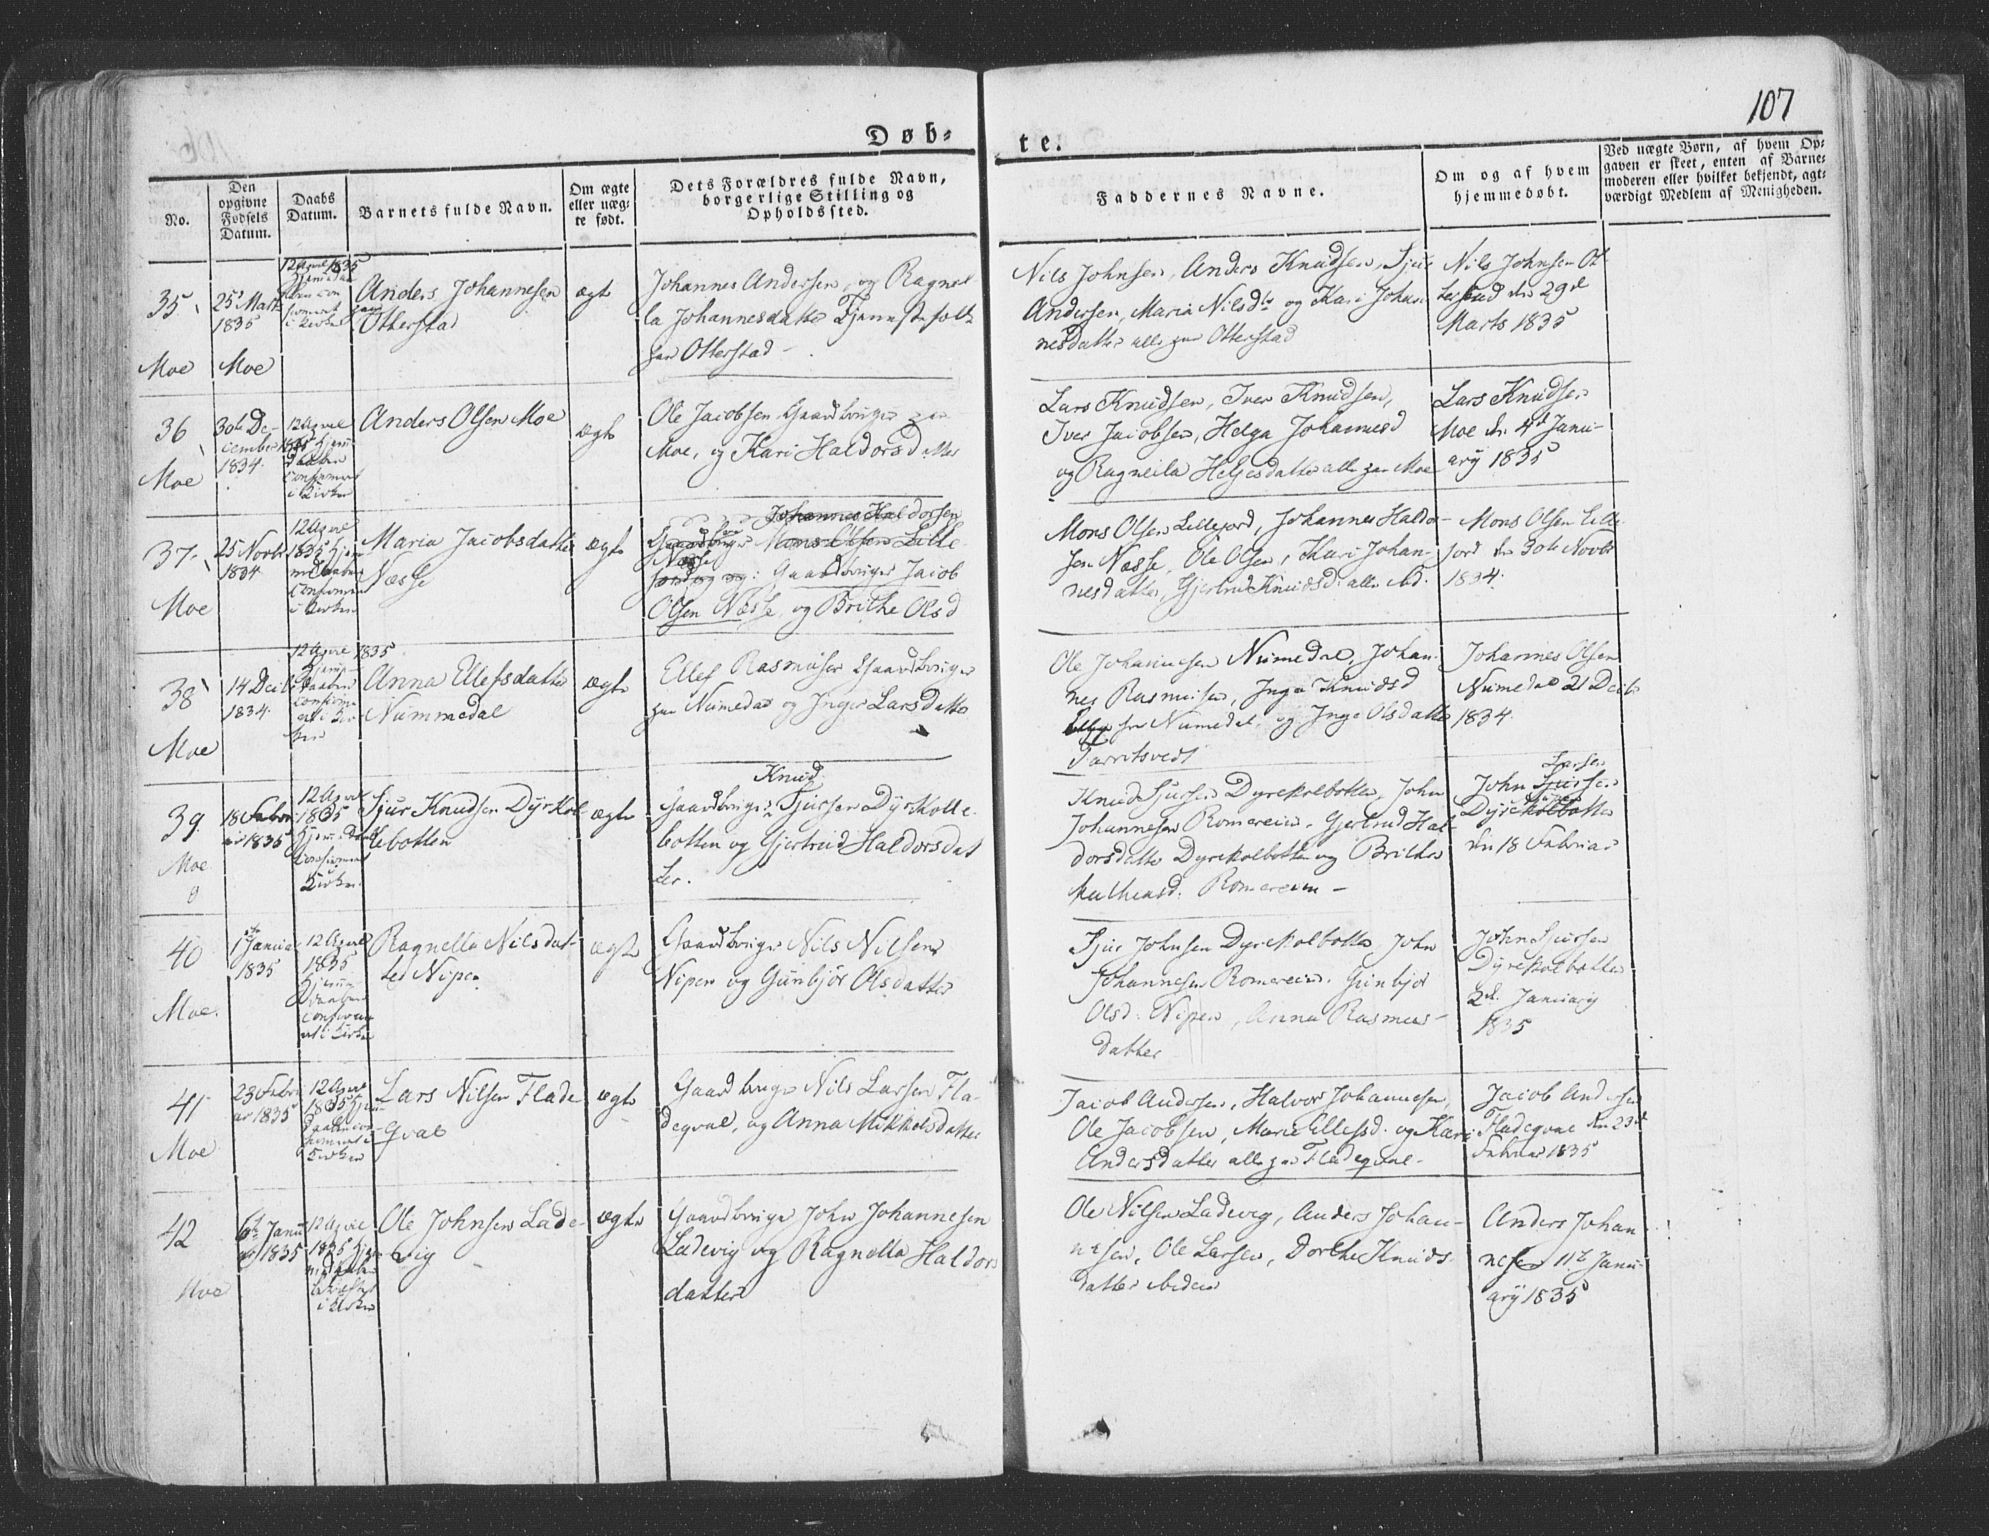 107
Døb=
te.
No.
Den
opgivne
Fødsels
Datum.
Daabs
Datum.
Barnets fulde Navn.
Om ægte
eller uæg-
te født.
Dets Forældres fulde Navn,
borgerlige Stilling og
Opholdssted.
Faddernes Navne.
Om og af hvem
hjemmedøbt.
Ved uægte Børn, af hvem Op-
gaven er skeet, enten af Barne-
moderen eller hvilket bekjendt, agt-
værdigt Medlem af Menigheden.
35
Moe
25 Marts
1835
Moe
12 April 1835
i Kirken
Anders Johannesen
Otterstad
ægte
Johannes Andersen, og Ragnel
la Johannesdatter Tjenestefolk
paa Otterstad
Nils Johnsen, Anders Knudsen, Sjur
Andersen, Maria Nilsd. og Kari Johan
nesdatter alle paa Otterstad
Nils Johnsen Ot
terstad den 29d
Marts 1835
36
Moe
30te De-
cember
1834.
12 April
1835 hjem
daaben
confirmert
i Kirken
Anders Olsen Moe
ægte
Ole Jacobsen Gaardbruger paa
Moe, og Kari Haldorsdatter
Lars Knudsen, Iver Knudsen,
Iver Jacobsen, Helga Johannesd
og Ragneila Helgesdatter alle paa Moe
Lars Knudsen
Moe den 4d Janu-
ary 1835
37
Moe
25 Novbr
1834
12 April
1835 hjem
medaaben
confirmert
i Kirken
Maria Jacobsdatter
Næsse
ægte
Johannes Haldorsen
Gaardbruger Mons Olsen Lille
Næsse
fjord og Gaardbruger Jacob
Olsen Næsse, og Brithe Olsd
Mons Olsen Lillefjord, Johannes Haldor-
sen Næsse, Ole Olsen, Kari Johan-
nesdatter, Gjertrud Knudsd. alle ibd.
Mons Olsen Lille
fjord den 30te Novbr
1834.
38
Moe
14 Decb
1834.
12 April 1835
hjem-
daaben
confirm
ert i Kir
ken
Anna Ellefsdatter
Nummedal
ægte
Ellef Rasmusen Gaardbruger
paa Numedal og Inger Larsdatter
Ole Johannesen Numedal, Johan-
nes Rasmusen, Inga Knudsd
fra Numedal, og Inga Olsdatter
Tarritsvedt
Johannes Olsen
Numedal 21 Decb
1834.
39
Moe
18 Febru
ar 1835
12 April
1835
hjemdaab
Confirmert
Kirken
Sjur Knudsen Dyrkol-
lebotten
ægte
Knud
Gaardbruger Sjursen Dyrkolle-
botten og Gjertrud Haldorsdat
ter.
Knud Sjursen Dyrekolbotten, John
Johannesen Romereim, Gjertrud Hal-
dorsdatter Dyrekolbotten og Brithe
Romereim
Larsen
John Sjursen
Dyrekolbotten
den 18 Februar
40
Moe.
1ste Januar
1835
12 April
1835
hjem
daaben
confirm
ert i Kirken
Ragnella Nilsdat-
ter Nipen
ægte
Gaardbruger Nils Nilsen
Nipen og Gunbjør Olsdatter
Sjur Johnsen Dyrekolbotten John
Johannesen Romereim, Gunbjør
Olsd: Nipen, Anna Rasmus-
datter
John Sjursen
Dyrekolbotten
2d. January
1835
41
Moe
23 Febru
ar 1835
12 April
1835 hjem
daaben con-
firmert i
Kirken
Lars Nilsen Flade
qval
ægte
Gaardbruger Nils Larsen Fla-
deqval, og Anna Mikkelsdatter
Jacob Andersen, Halvor Johannesen,
Ole Jacobsen, Marie Ellefsd. og Kari
Andersdatter alle paa Fladeqval.
Jacob Andersen
Fladeqval den 23d
Februar 1835
42
Moe
6te Janu
ar 1835
12 April
1835 hjem
medaaben
i Kirken
Ole Johnsen Lade-
vig
ægte
Gaardbruger John Johannesen
Ladevig og Ragnella Haldors
datter
Ole Nilsen Ladevig, Anders Johan-
nesen, Ole Larsen, Dorthe Knuds
datter ibidem
Anders Johan
nesen 11te Janu-
ary 1835